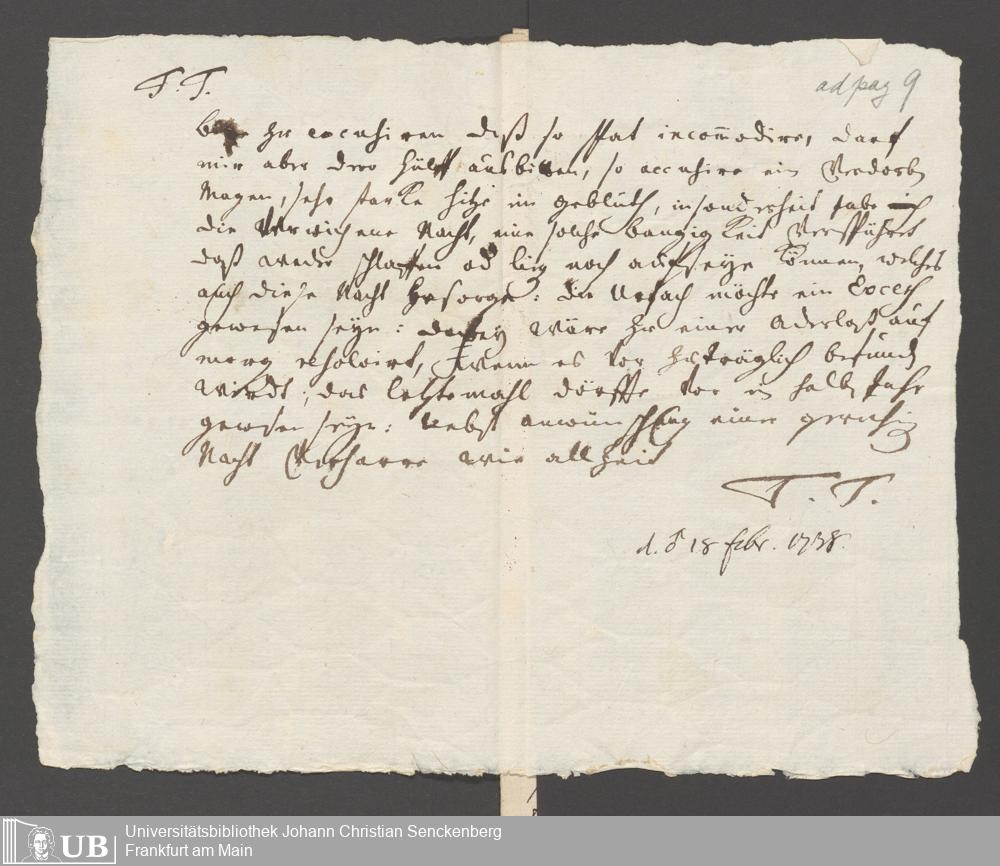 T. T.
ad pag 9
Bitte zu excusiren daß so spat incom̄odire, darf
mir aber dero hülff ausbitten, so accusire ein Verdorb
Magen, sehr starke hitze im geblüth, insonderheit habe ich
die Verwichene Nacht, eine solche bangigkeit Verspühret
daß weder schlaffen od lieg noch aufseyn können, welches
auch diese Nacht besorge: die Ursach möchte ein Excess
gewesen seyn: dabey wäre zu einer Aderlaß auf
morg resolvirt, wenn es vor zuträglich befund
wirdt; das letztemahl dörffte vor ein halb Jahr
gewesen seyn: nebst anwünschung einer geruhig
Nacht Verharre wie allzeit
T. T.
d. 18 febr. 1738.
Universitätsbibliothek Johann Christian Senckenberg
Frankfurt am Main
UB